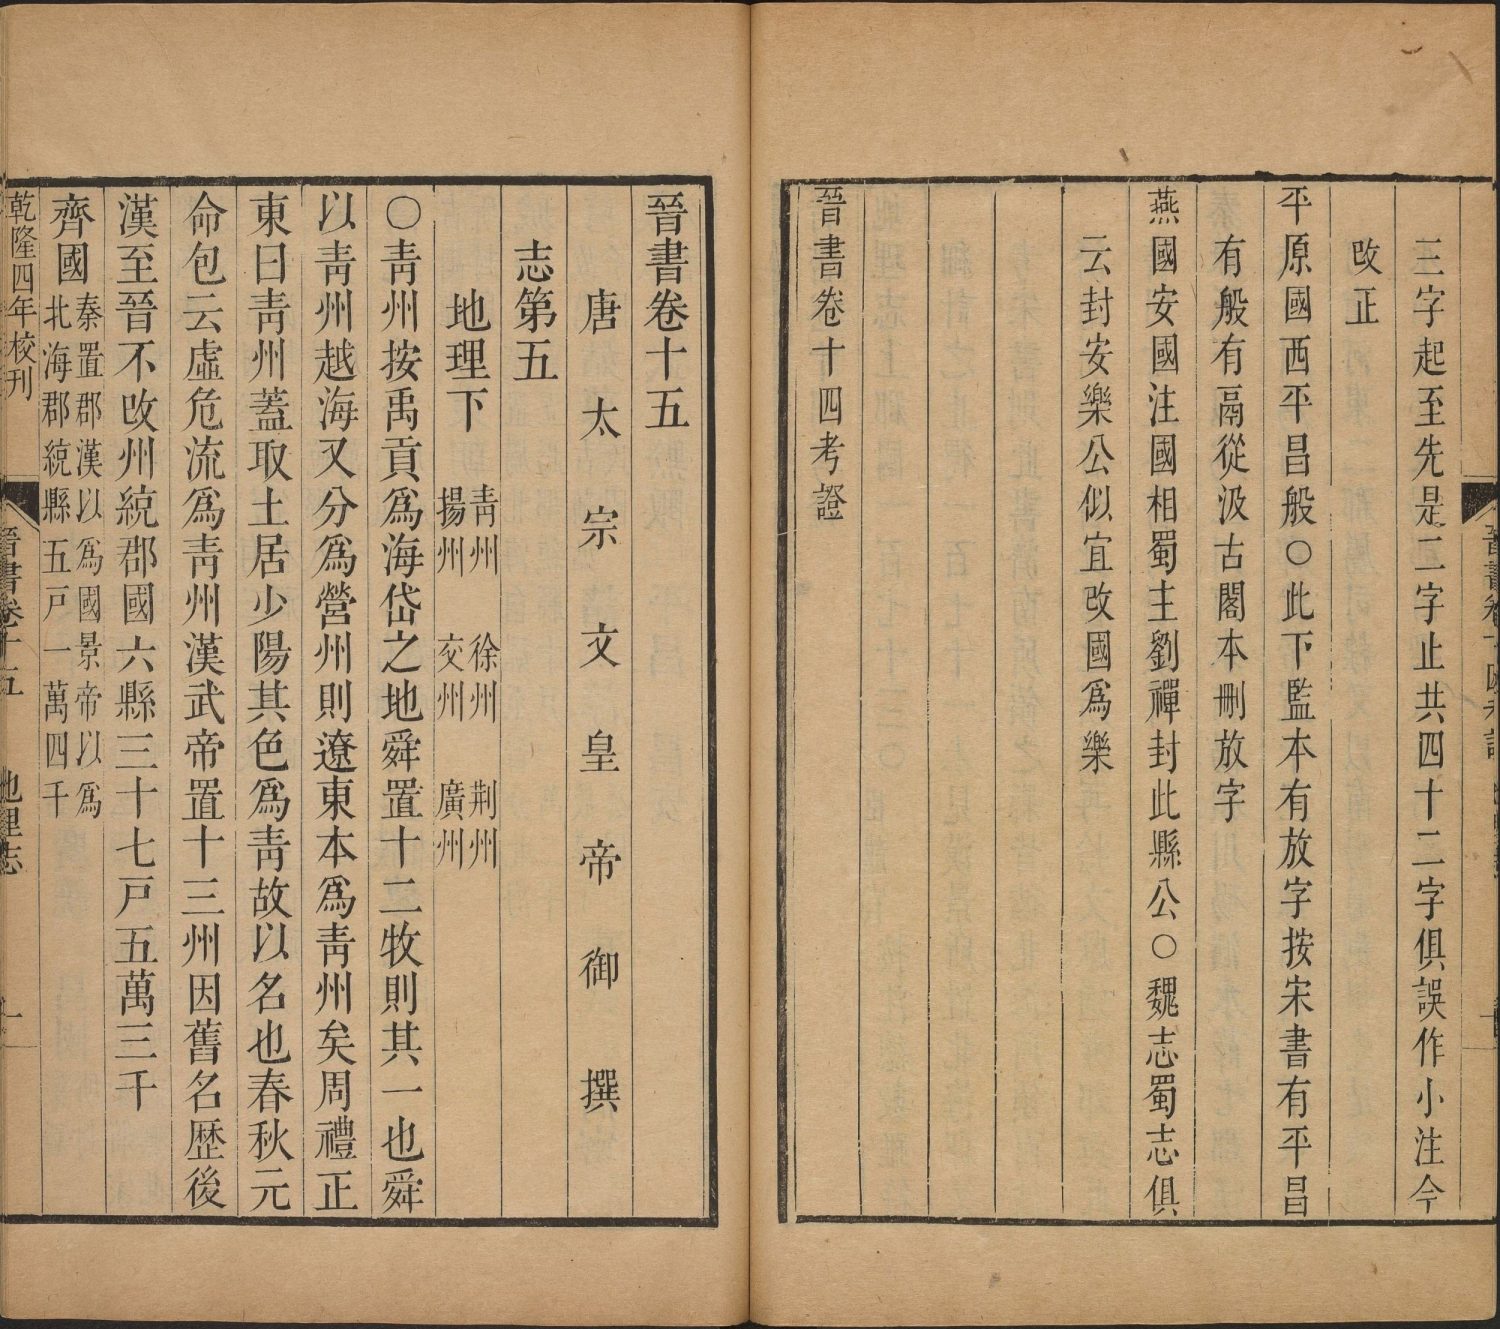 三字起至先是二字止共四十二字俱誤作小注今
改正
平原國西平昌般〇此下監本有放字按宋書有平昌
有般有鬲從汲古閣本刪放字
燕國安國注國相蜀主劉禪封此縣公〇魏志蜀志俱
云封安樂公似宜改國爲樂
晉書卷十四考證
晉書卷十五
唐太宗文皇帝御撰
志第五
地理下
青州 徐州 荆州
揚州 交州 廣州
〇青州按禹貢爲海岱之地舜置十二牧則其一也舜
以青州越海又分爲營州則遼東本爲青州矣周禮正
東曰青州蓋取土居少陽其色爲青故以名也春秋元
命包云虛危流爲青州漢武帝置十三州因舊名歷後
漢至晉不改州統郡國六縣三十七戸五萬三千
齊國
秦置郡漢以爲國景帝以爲
北海郡統縣五戸一萬四千
乾隆四年校刊
晉書卷十五 地理志 一